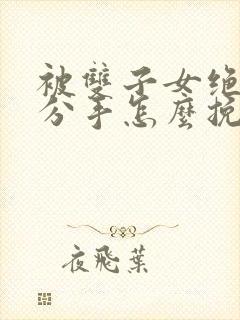 被雙子女绝
分手怎麼挽
夜飛葉